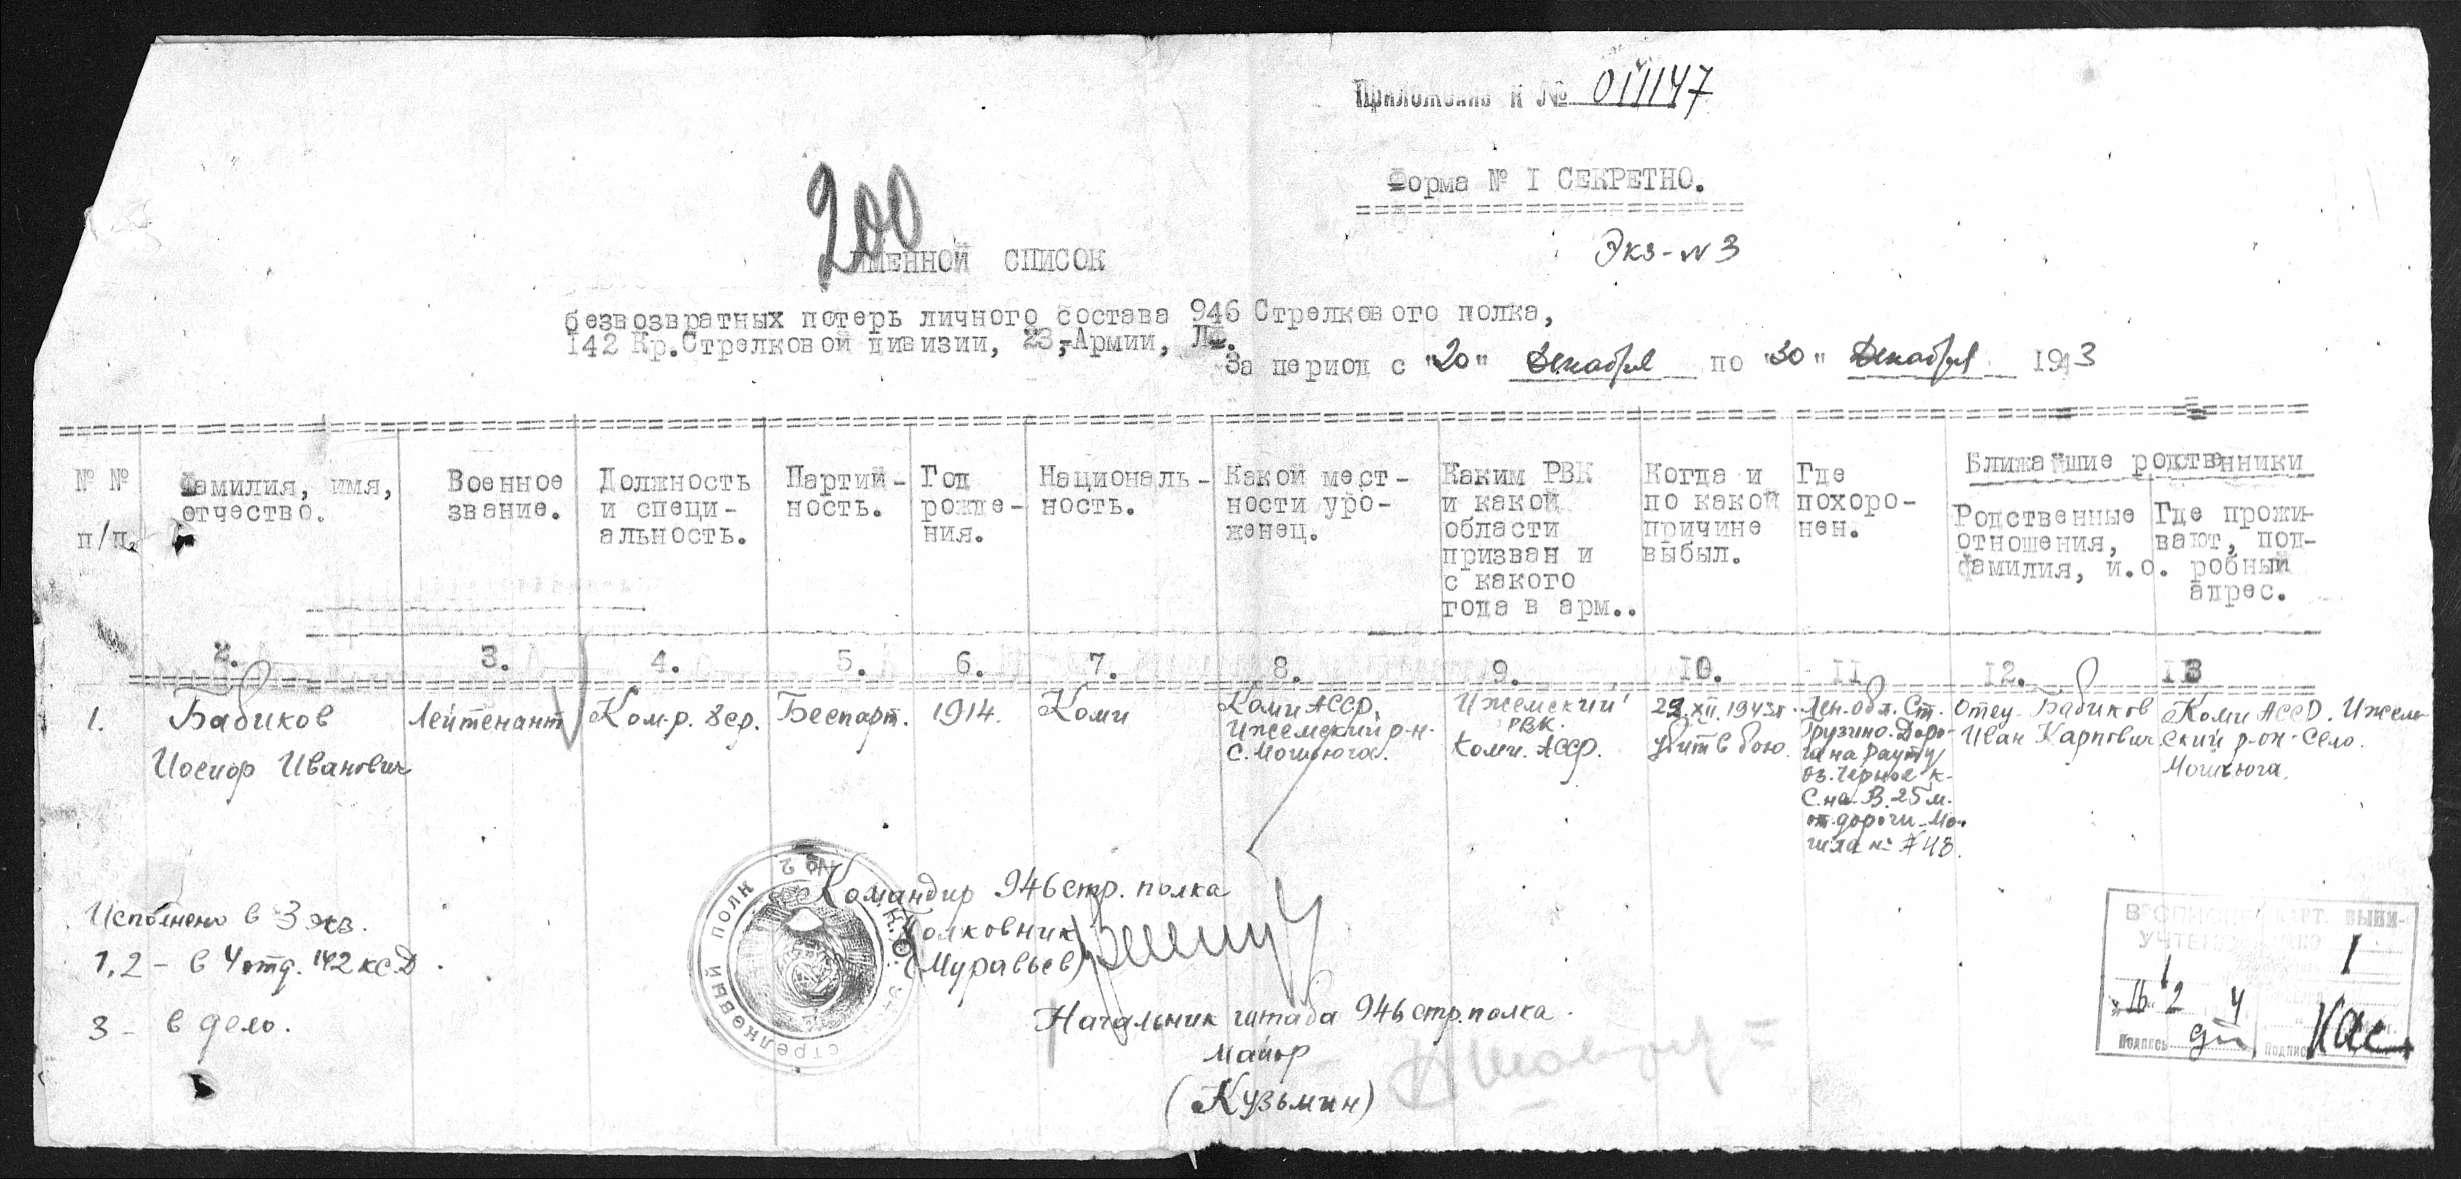 Приложение к № 011147
Форма № I СЕКРЕТНО.
Экз-№ 3
200
ИМЕННОЙ СПИСОК
безвозвратных потерь личного состава 946 Стрелкового полка,
142 Кр.Стрелковой дивизии, 23,-Армии, ЛФ.
За период с "20" Декабря по "30" Декабря 1943
№ № п/п.
Фамилия, имя, отчество.
Военное звание.
Должность и специ-альность.
Партий-ность.
Год рожде-ния.
Националь-ность.
Какой мест-ности уро-женец.
Каким РВК и какой области призван и с какого года в арм..
Когда и по какой причине выбыл.
Где похоро-нен.
Ближайшие родственники
Родственные отношения, фамилия, и.о.
Где прожи-вают, под-робный адрес.
2. 3. 4. 5. 6. 7. 8. 9. 10. 11 12. 13
1.
Бабиков
Иосиф Иванович
Лейтенант
Ком-р.
Беспарт.
1914.
Коми
Коми АССР,
Ижемский р-н.
с. Мошьюга.
Ижемский
РВК.
Коми. АССР.
29.XII.1943г.
убит в бою.
Лен. обл. Ст.
Грузино. Доро-
га на Рауту
оз. Черное к-
С. на В. 25 м.
от дороги. Мо-
гила №
Отец Бабиков
Иван Карпович
Коми АССР. Ижем-
ский р-он. Село.
Мошьюга.
Командир 946 стр. полка
Полковник
(Муравьев)
Начальник штаба 946 стр. полка.
Майор
(Кузьмин)
Исполнено в 3 экз.
1,2 - в 4 отд. 142 ксД.
3 - в дело.
СТРЕЛКОВЫЙ ПОЛК № 2
Подпись
Подпись